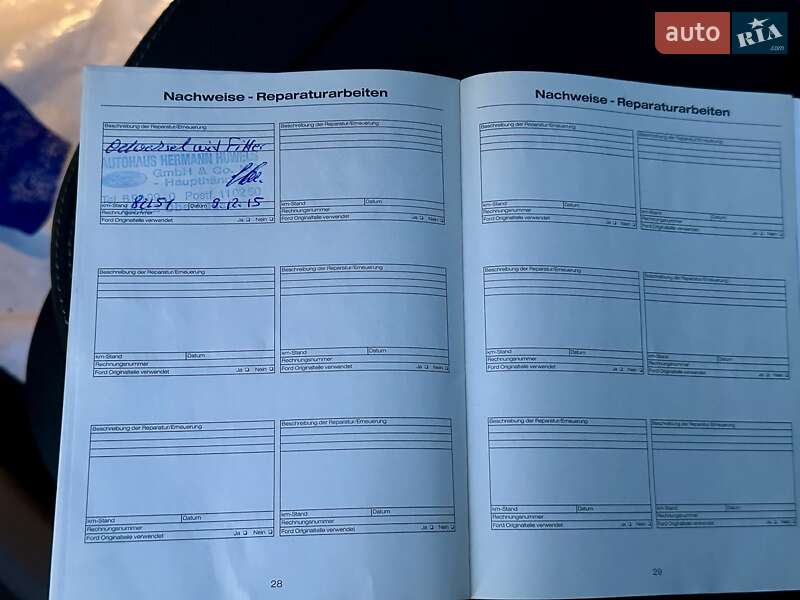 auto RIA .com
Nachweise - Reparaturarbeiten
Beschreibung der Reparatur/Erneuerung
Ölwechsel und Filter
AUTOHAUS HERMANN HUWE
GmbH & Co.
- Haupthän
Tel. Postf.
km-Stand Datum 9.12.15
Rechnungsnummer
Ford Originalteile verwendet Ja Nein
Beschreibung der Reparatur/Erneuerung
km-Stand Datum
Rechnungsnummer
Ford Originalteile verwendet Ja Nein
Beschreibung der Reparatur/Erneuerung
km-Stand Datum
Rechnungsnummer
Ford Originalteile verwendet Ja Nein
Beschreibung der Reparatur/Erneuerung
km-Stand Datum
Rechnungsnummer
Ford Originalteile verwendet Ja Nein
Beschreibung der Reparatur/Erneuerung
km-Stand Datum
Rechnungsnummer
Ford Originalteile verwendet Ja Nein
Beschreibung der Reparatur/Erneuerung
km-Stand Datum
Rechnungsnummer
Ford Originalteile verwendet Ja Nein
28
Nachweise - Reparaturarbeiten
Beschreibung der Reparatur/Erneuerung
km-Stand Datum
Rechnungsnummer
Ford Originalteile verwendet Ja Nein
Beschreibung der Reparatur/Erneuerung
km-Stand Datum
Rechnungsnummer
Ford Originalteile verwendet Ja Nein
Beschreibung der Reparatur/Erneuerung
km-Stand Datum
Rechnungsnummer
Ford Originalteile verwendet Ja Nein
Beschreibung der Reparatur/Erneuerung
km-Stand Datum
Rechnungsnummer
Ford Originalteile verwendet Ja Nein
Beschreibung der Reparatur/Erneuerung
km-Stand Datum
Rechnungsnummer
Ford Originalteile verwendet Ja Nein
Beschreibung der Reparatur/Erneuerung
km-Stand Datum
Rechnungsnummer
Ford Originalteile verwendet Ja Nein
29